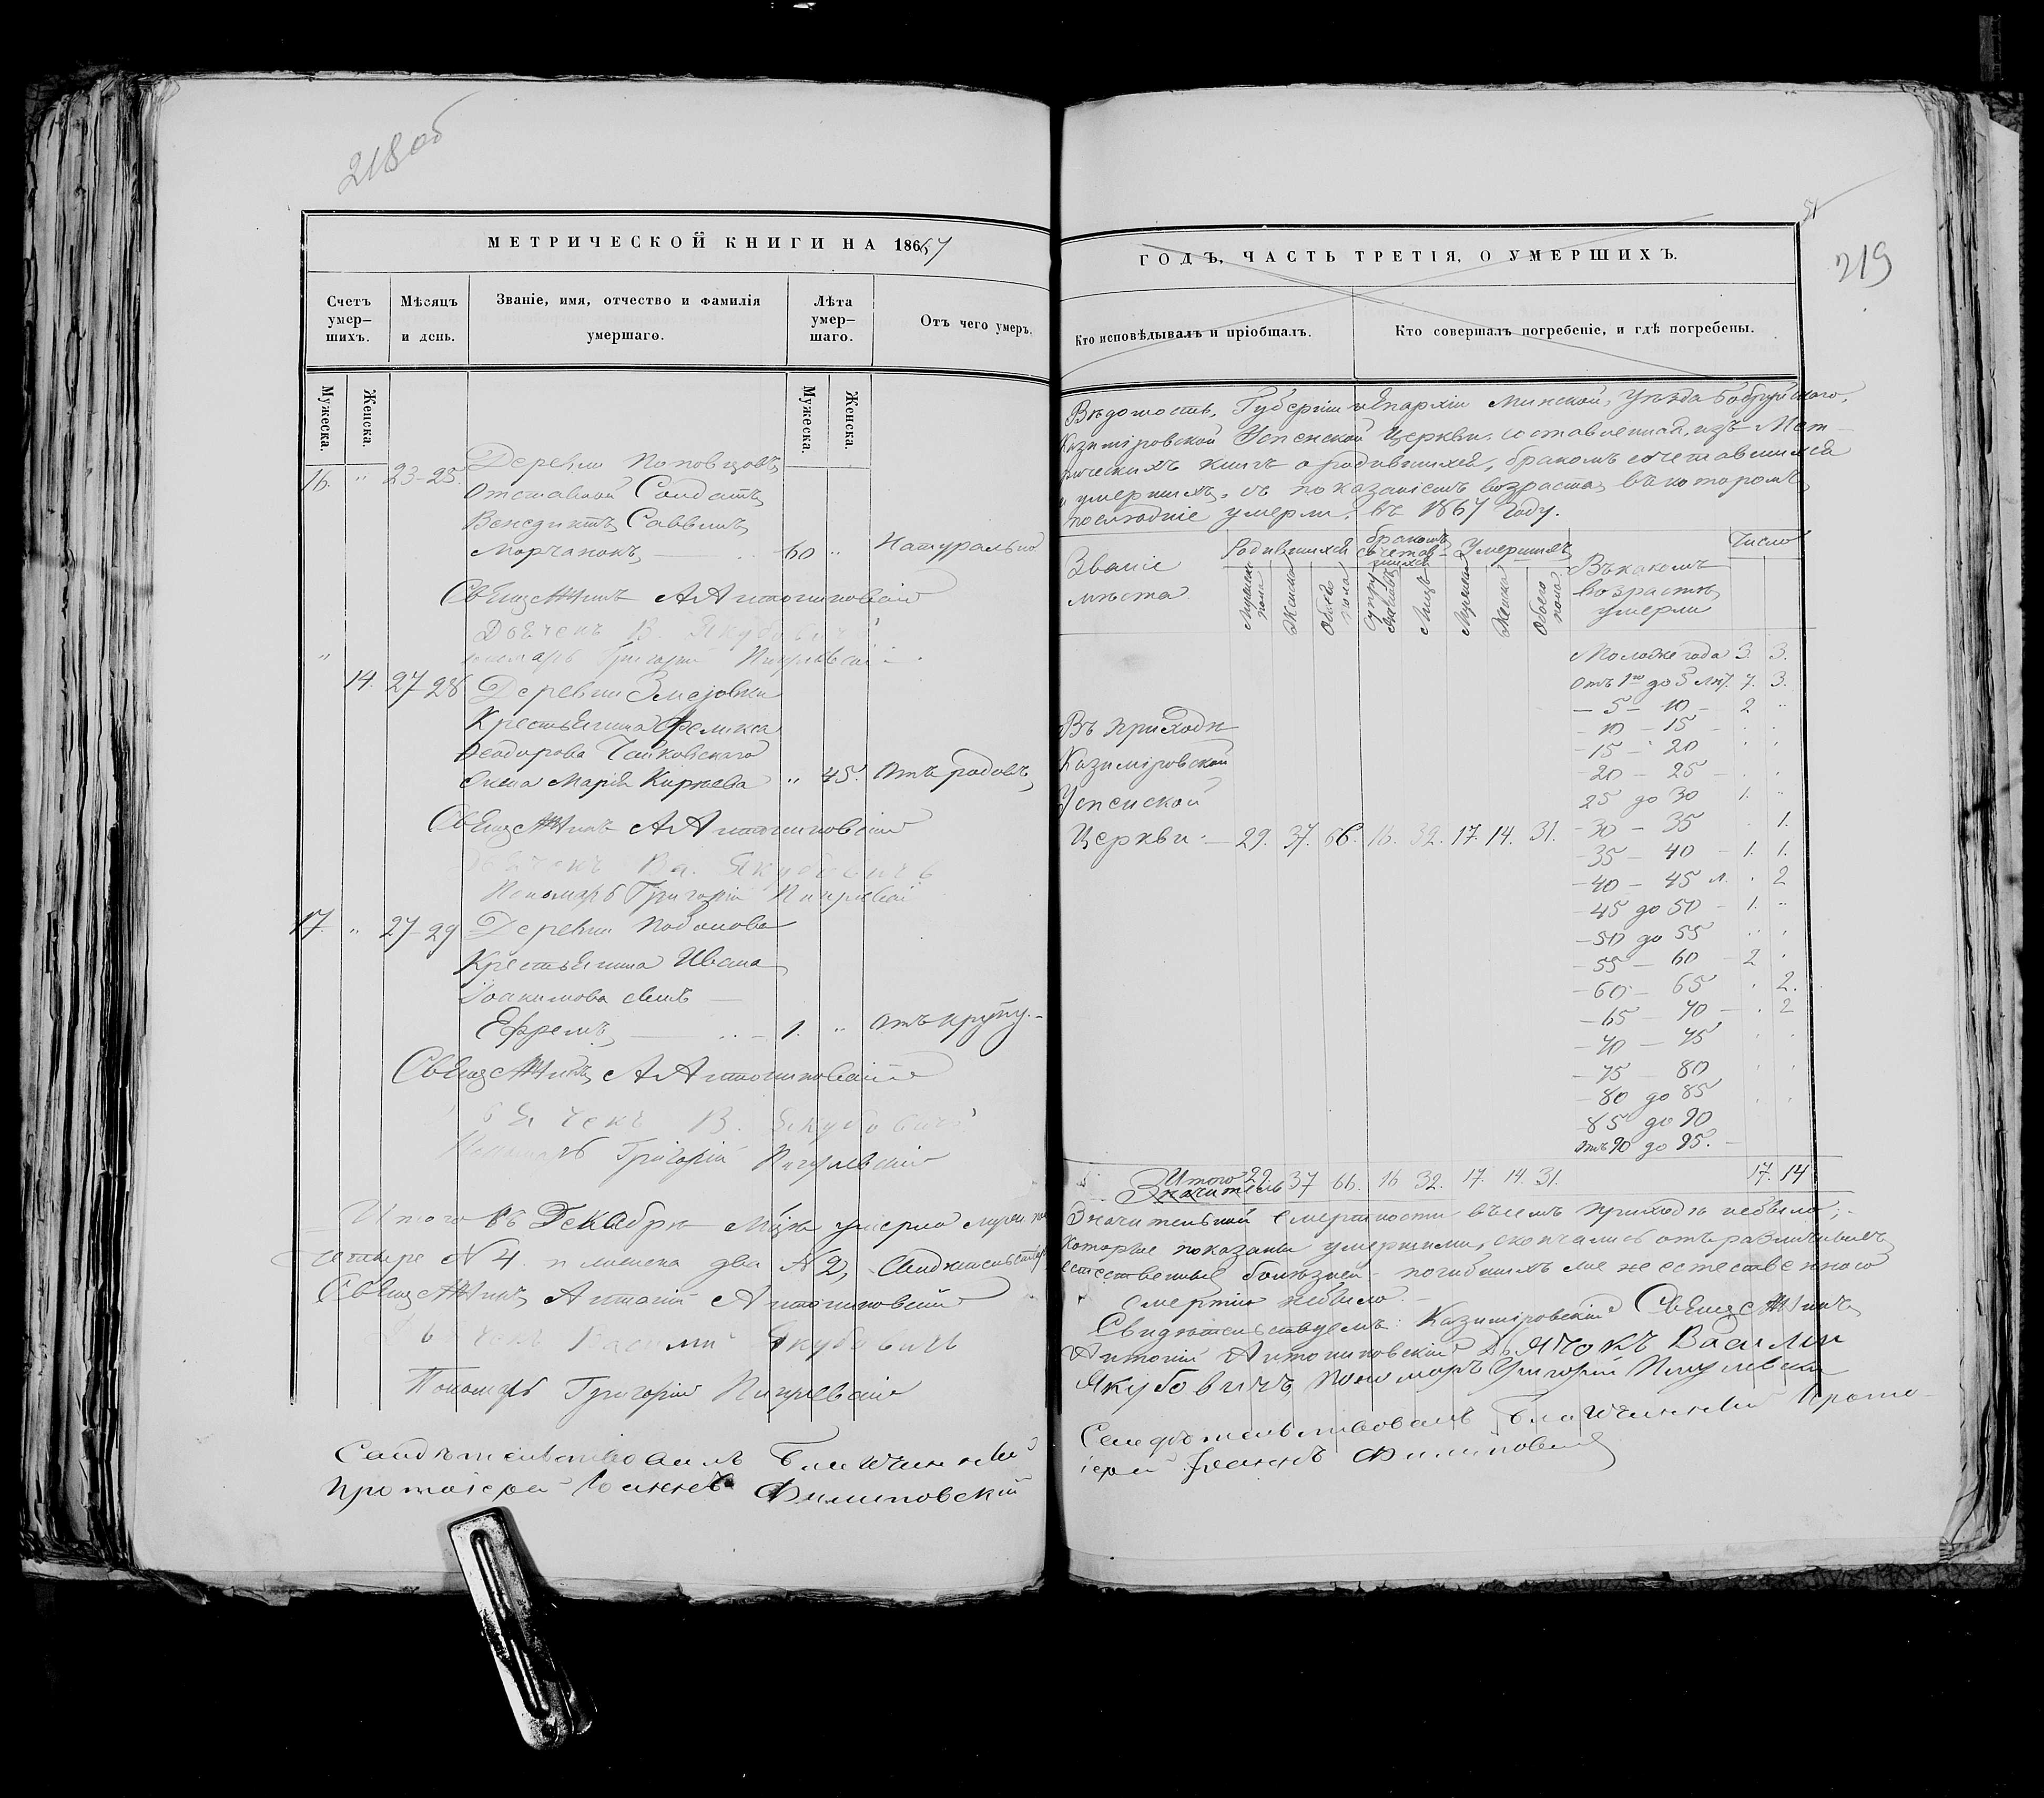 218 об
МЕТРИЧЕСКОЙ КНИГИ НА 1867
Счетъ умер– шихъ.
Мѣсяцъ и день.
Званіе, имя, отчество и фамилія умершаго.
Лѣта умер– шаго.
Отъ чего умеръ.
Мужеска.
Женска.
Мужеска.
Женска.
Деревни
16. " 23-25.
Отставной Солдатъ
Венедиктъ Саввинъ
Морчанокъ 60 " Натурально
Священникъ А Антониновскій
Дьячекъ В. Якубовичъ
Пономарь Григорій
" 14. 27-28 Деревни
Крестьянина Феликса
Ѳеодорова Чайковскаго
жена Марія " 45. Отъ родовъ
Священникъ А Антониновскій
Дьячекъ Ва. Якубовичъ
Пономарь Григорій
17. " 27-29 Деревни
Крестьянина Ивана
Іоакимова сынъ
Ефремъ 1. " отъ крупу.
Священникъ А Антониновскій
Дьячекъ В. Якубовичъ
Пономарь Григорій
Итого въ Декабрѣ умерло
четыре № 4. и женска два № 2,
Священникъ Антоній Антониновскій
Дьячекъ Василий Якубовичъ
Пономарь Григорій
Свидѣтельствовалъ Благочинный
Протоіерей Іоаннъ Филиповскій
219
ГОДЪ, ЧАСТЬ ТРЕТІЯ, О УМЕРШИХЪ.
Кто исповѣдывалъ и пріобщалъ.
Кто совершалъ погребеніе, и гдѣ погребены.
Вѣдомость, Губерніи и Епархіи Минской, Уѣзда Бобруйскаго,
Казиміровской Успенской Церкви, составленная, изъ Мет–
рическихъ книгъ о родившихся, бракомъ сочетавшихся
и умершихъ, съ показаніемъ возраста, въ которомъ
послѣдніе умерли, въ 1867 году.
Званіе мѣста
Родившихся
бракомъ сочетав– шихся
Умершихъ
Въ какомъ возрастѣ умерли
Число
Мужеска пола
Женска
Обоего пола
Лицъ
Мужеска
Женска
Обоего пола
Моложе года 3. 3.
Отъ 1го до 5 лѣт. 7. 3.
– 5 – 10 – 2 "
– 10 – 15 –
– 15 – 20
– 20 – 25 –
25 до 30 1. "
– 30 – 35 . 1.
– 35 – 40 – 1. 1.
– 40 – 45 л. . 2
– 45 до 50 – 1. "
– 50 до 55
– 55 – 60 – 2 .
– 60 – 65 . 2.
– 65 – 70 – . 2
– 70 – 75
– 75 – 80
– 80 до 85
– 85 до 90
Отъ 90 до 95. –
Въ приходѣ
Казиміровской
Успенской
Церкви – 29. 37. 66. 16. 32. 17. 14. 31.
Итого 29. 37 66. 16 32. 17. 14. 31. 17. 14
Значительной смертности въ семъ приходѣ небыло;
которые показаны умершими, скончались отъ различныхъ
естественныхъ болѣзней – погибшихъ же не естественною
смертію небыло. –
Свидѣтельствуемъ: Казиміровскій Священникъ
Антоній Антониновскій Дьячокъ Василій
Якубовичъ, пономарь Григорій
Свидѣтельствовалъ Благочинный Прото–
іерей Іоаннъ Филиповскій